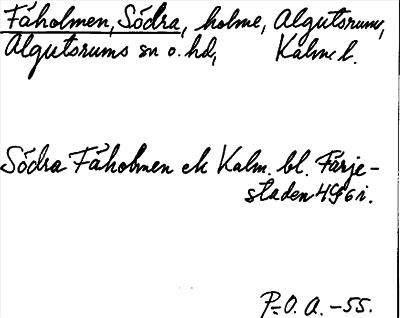 Fåholmen, Södra, holme, Algutsrum,
Algutsrums sn o. hd, Kalm. l.
Södra Fåholmen ek Kalm. bl. Färje-
staden 4G6i.
P.-O. A. -55.